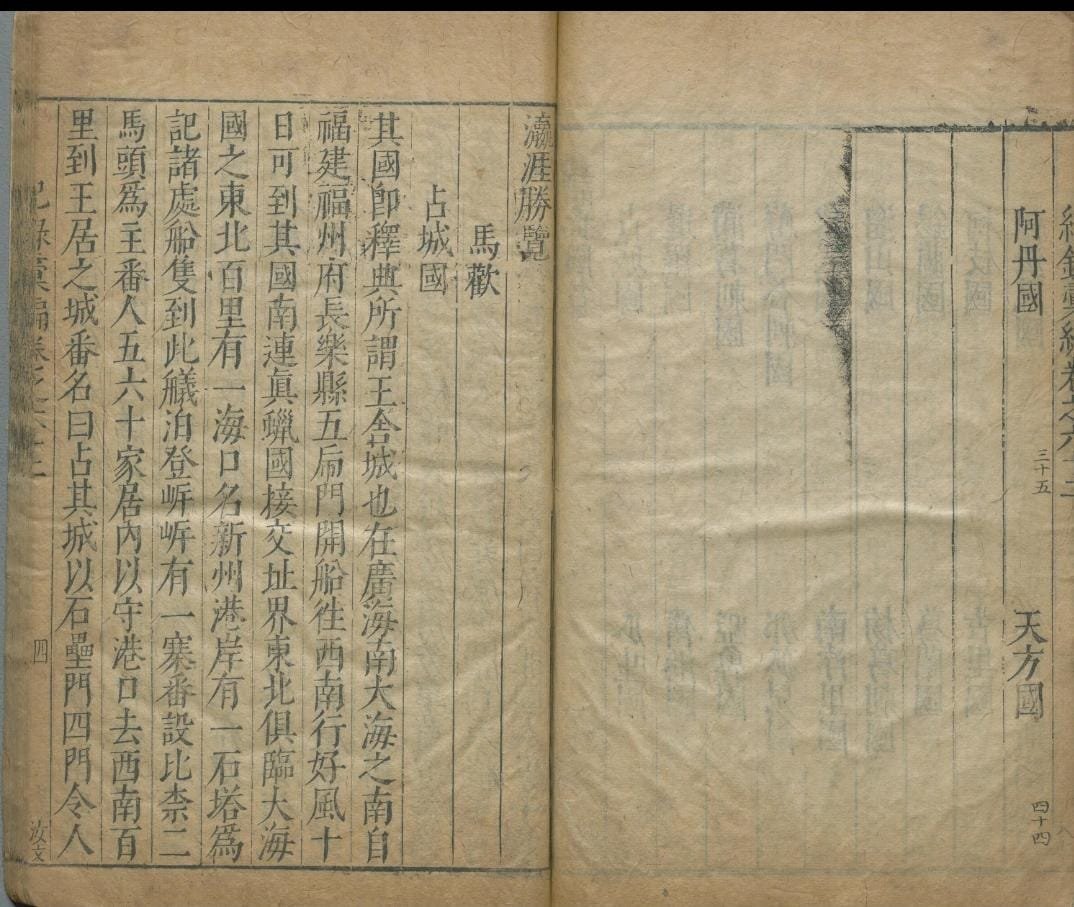 紀錄彙編卷之六十二
阿丹國 三十五 天方國 四十四
瀛涯勝覽
馬歡
占城國
其國卽釋典所謂王舍城也在廣海南大海之南自
福建福州府長樂縣五虎門開船徃西南行好風十
日可到其國南連眞蠟國接交址界東北俱臨大海
國之東北百里有一海口名新州港岸有一石塔爲
記諸處船隻到此艤泊登岍岍有一寨番設比柰二
馬頭爲主番人五六十家居內以守港口去西南百
里到王居之城番名曰占其城以石壘門四門令人
紀錄彙編卷之六十二 四 汝支